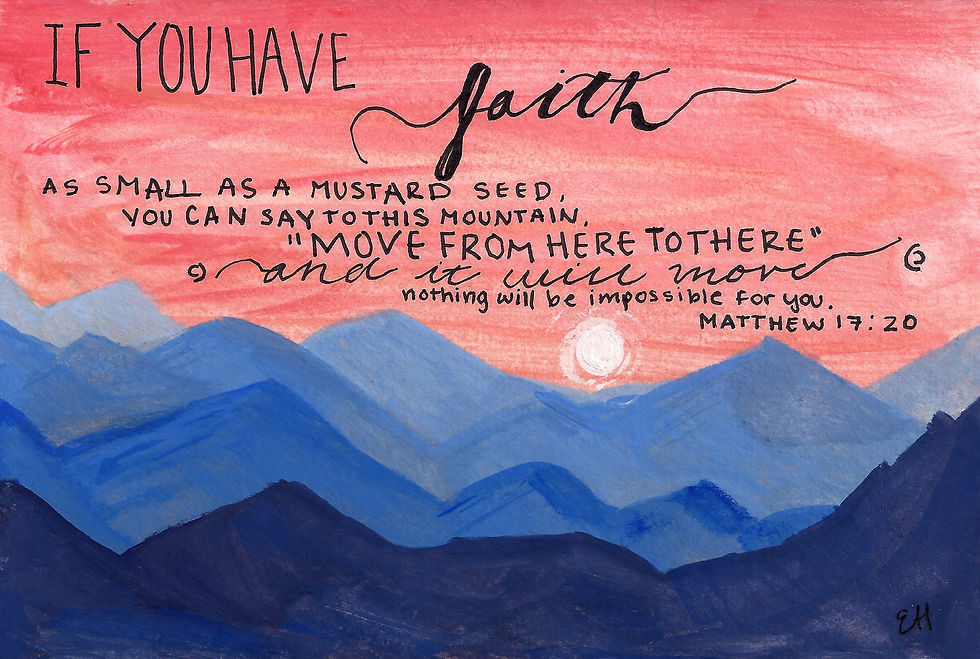 IF YOU HAVE
faith
AS SMALL AS A MUSTARD SEED,
YOU CAN SAY TO THIS MOUNTAIN,
"MOVE FROM HERE TO THERE"
and it will move
nothing will be impossible for you.
MATTHEW 17:20
EH